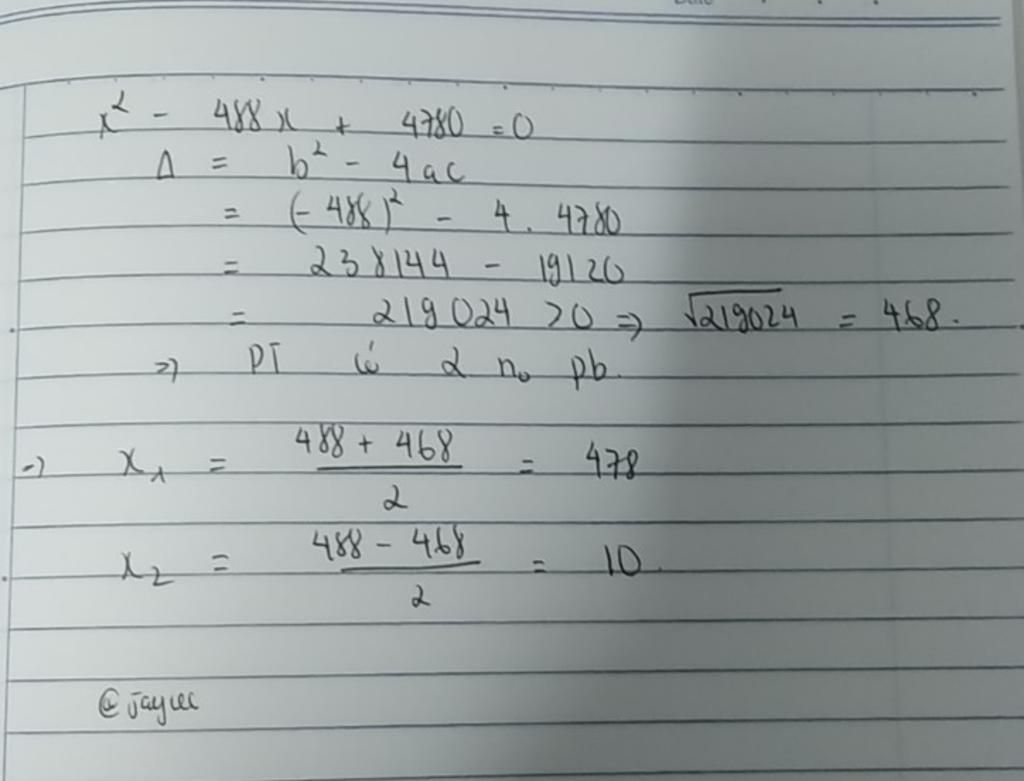 x² - 488x + 4780 = 0
Δ = b² - 4ac
= (-488)² - 4. 4780
= 238144 - 19120
= 219024 > 0 => √219024 = 468.
=> PT có 2 n₀ pb.
=> x₁ = (488 + 468)/2 = 478
x₂ = (488 - 468)/2 = 10.